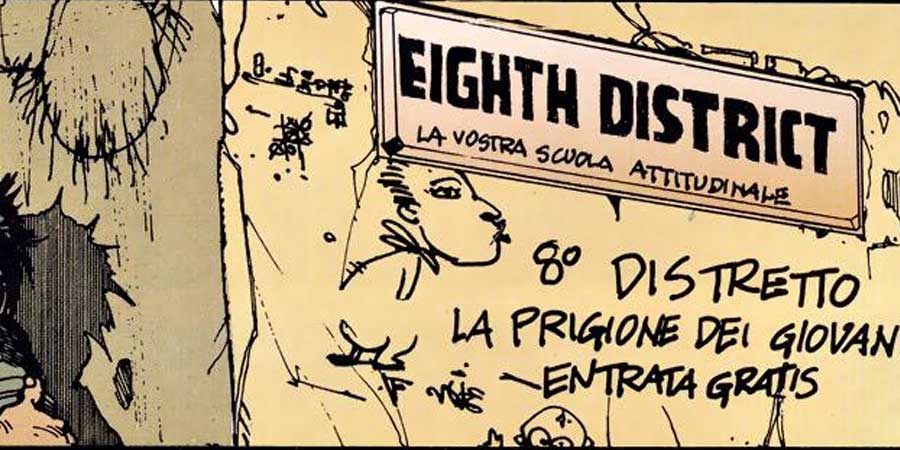 EIGHTH DISTRICT
LA VOSTRA SCUOLA ATTITUDINALE
8º DISTRETTO
LA PRIGIONE DEI GIOVAN
ENTRATA GRATIS